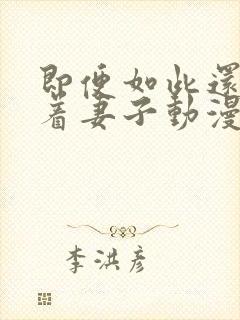 即便如此還
着妻子動漫
李洪彦